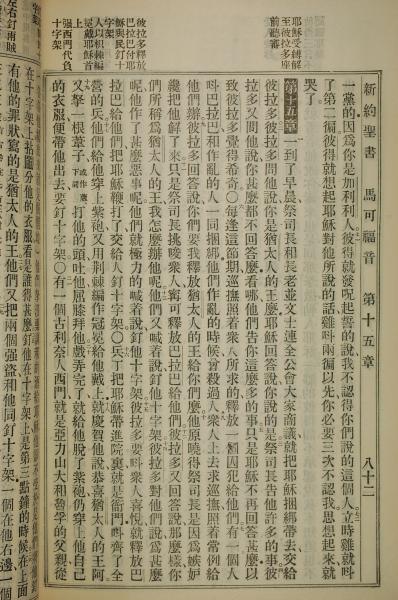 新約聖書 馬可福音 第十五章 八十二
一黨的因爲你是加利利人彼得就發呪起誓的說我不認得你們說的這個人立時雞就叫
了第二徧彼得就想起耶穌對他所說的話雞叫兩徧以先你必要三次不認我思想起來就
哭了
耶穌受縛解
至彼拉多座
前聽審
第十五章一到了早晨祭司長和長老並文士連全公會大家商議就把耶穌捆綁帶去交給
彼拉多彼拉多問他說你是猶太人的王麼耶穌回答說你說的是祭司長告他許多的事彼
拉多又問他說你甚麼都不回答麼看哪他們告你這麼多的事只是耶穌不再回答甚麼以
致彼拉多覺得希奇〇每逢這節期巡撫照着衆人所求的釋放一個囚犯給他們有一個人
叫巴拉巴和作亂的人一同捆綁他們作亂的時候曾殺過人衆人上去求巡撫照着常例給
他們辦彼拉多回答說你們要我釋放猶太人的王給你們麼他原曉得祭司長是因爲嫉妒
纔把他解了來只是祭司長挑唆衆人寗可釋放巴拉巴給他們彼拉多又回答說那麼樣你
們所稱爲猶太人的王我怎麼辦他呢他們又喊着說釘他十字架彼拉多對他們說爲甚麼
彼拉多釋放
巴拉巴付耶
穌與民釘十
字架
呢他作了甚麼惡事呢他們就極力的喊着說釘他十字架彼拉多要叫衆人喜悅就釋放巴
拉巴給他們把耶穌鞭打了交給人釘十字架〇兵丁把耶穌帶進院裏就是衙門叫齊了全
人以棘編
冕戴耶穌首
營的兵他們給他穿上紫袍又用荆棘編作冠冕給他戴上就慶賀他說恭喜猶太人的王阿
又拏一根葦子打他的頭吐他屈膝拜他戲弄完了就給他脫了紫袍仍穿上他自己
强西門代負
十字架
的衣服便帶他出去要釘十字架〇有一個古利奈人西門就是亞力山大和魯孚的父親從
在十字架上拈鬮分他的衣服看是誰得甚麼釘他在十字架上是第三點鐘的時候在上面
左右釘兩賊
有他的罪狀寫的是猶太人的王他們又把兩個强盜和他同釘十字架一個在他右邊一個